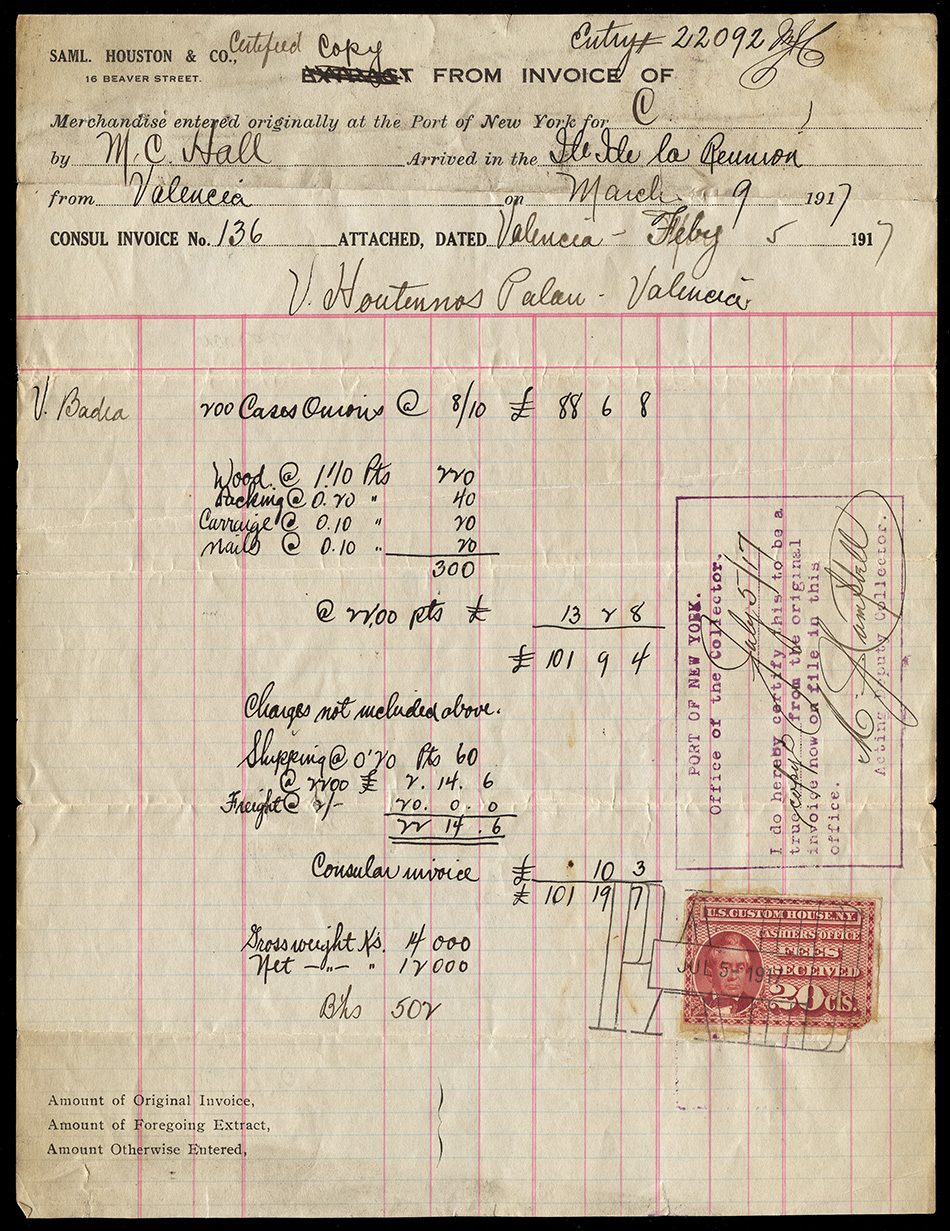 SAML. HOUSTON & CO., Certified Copy Entry # 22092
16 BEAVER STREET. EXTRACT FROM INVOICE OF
Merchandise entered originally at the Port of New York for C
by M. C. Hall Arrived in the Ile de la Reunion
from Valencia on March 9 1917
CONSUL INVOICE No. 136 ATTACHED, DATED Valencia - Feby 5 1917
V. Houtennos Palau - Valencia
V. Badia 200 Cases Onions @ 8/10 £ 88 6 8
Wood @ 1.10 Pts 220
Packing @ 0.20 " 40
Carraige @ 0.10 " 20
Nails @ 0.10 " 20
300
@ 22,00 pts £ 13 2 8
£ 101 9 4
Charges not included above.
Shipping @ 0'20 Pts 60
@ 2200 £ 2. 14. 6
Freight @ 2/- 20. 0. 0
22 14. 6
Consular invoice £ 10 3
£ 101 19 7
Gross weight Ks. 14 000
Net —"— " 12 000
B/hs 502
PORT OF NEW YORK.
Office of the Collector.
July 5/17
I do hereby certify this to be a
true copy from the original
invoice now on file in this
office.
Acting Deputy Collector.
U.S. CUSTOM HOUSE. N.Y.
CASHIER'S OFFICE
FEES
RECEIVED
20 cts.
JUL 5- 1917
Amount of Original Invoice,
Amount of Foregoing Extract,
Amount Otherwise Entered,